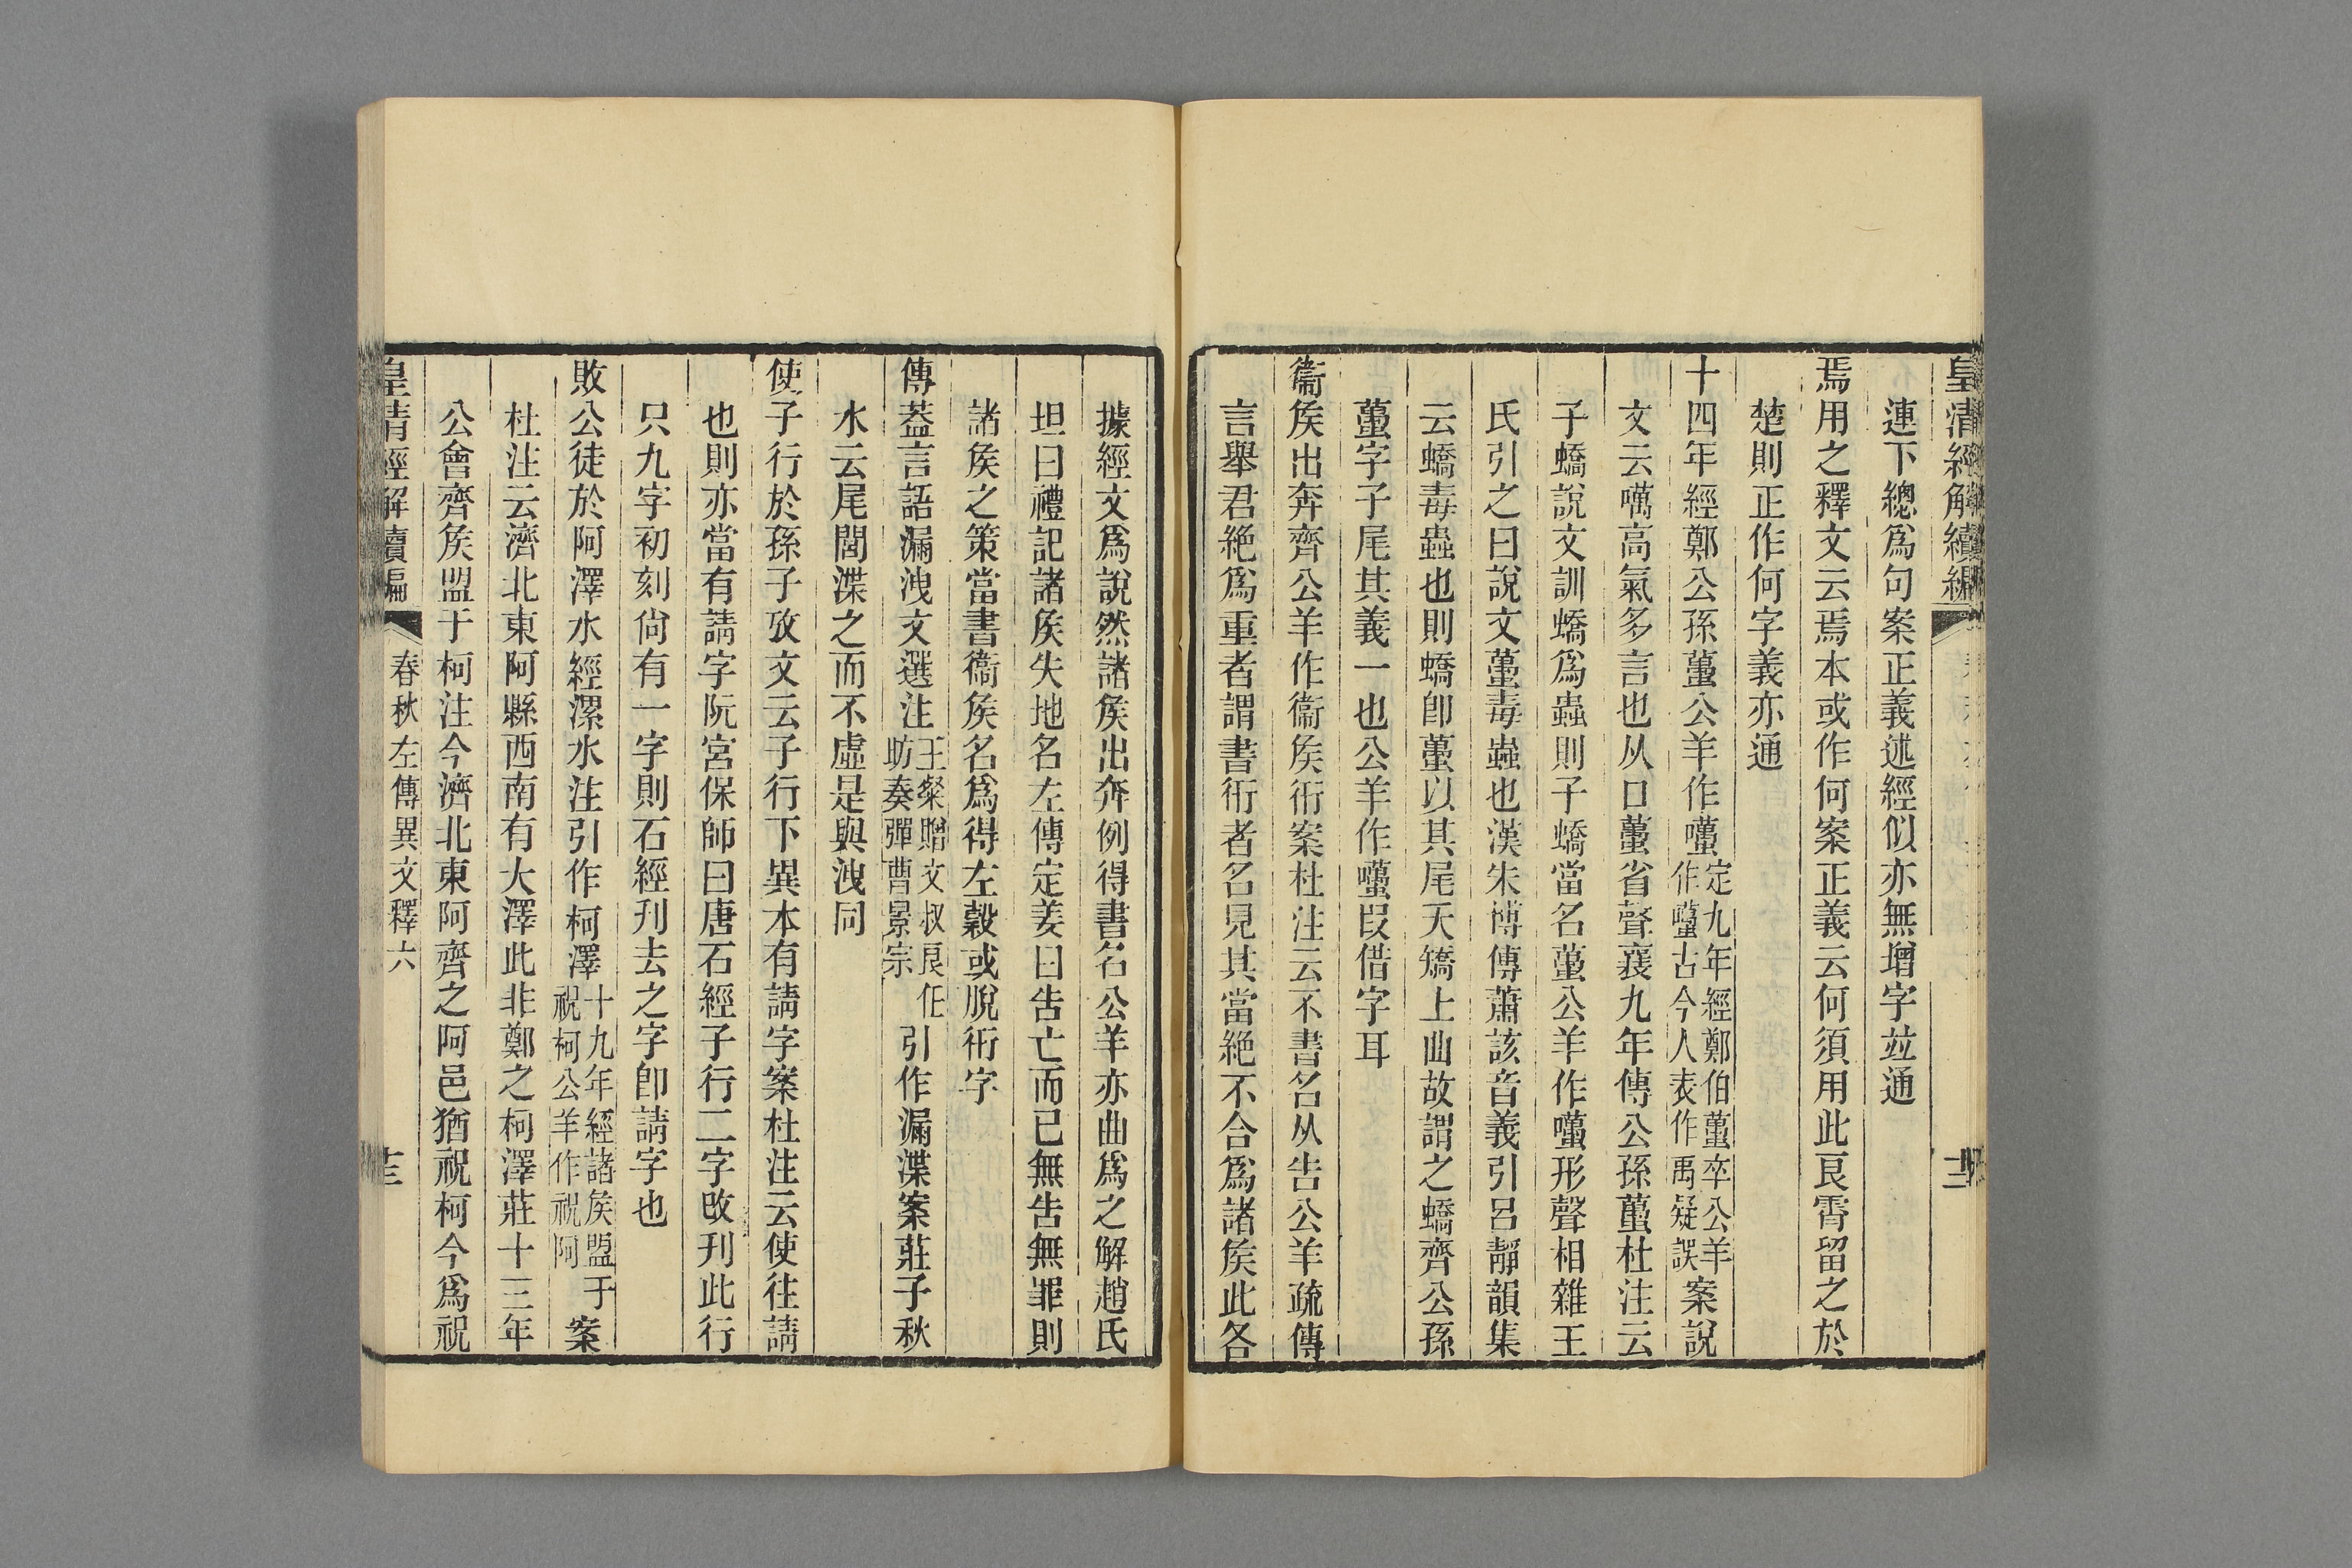 皇清經解續編
連下總爲句案正義述經似亦無增字竝通
焉用之釋文云焉本或作何案正義云何須用此良霄留之於
楚則正作何字義亦通
十四年經鄭公孫蠆公羊作囆定九年經鄭伯蠆卒公羊作囆古今人表作禹疑誤案說
文云噧高氣多言也从口蠆省聲襄九年傳公孫蠆杜注云
子蟜說文訓蟜爲蟲則子蟜當名蠆公羊作囆形聲相雜王
氏引之曰說文蠆毒蟲也漢朱博傳蕭該音義引呂靜韻集
云蟜毒蟲也則蟜卽蠆以其尾天矯上曲故謂之蟜齊公孫
蠆字子尾其義一也公羊作囆叚借字耳
衞矦出奔齊公羊作衞矦衎案杜注云不書名从告公羊疏傳
言舉君絶爲重者謂書衎者名見其當絶不合爲諸矦此各
據經文爲說然諸矦出奔例得書名公羊亦曲爲之解趙氏
坦曰禮記諸矦失地名左傳定姜曰告亡而已無告無罪則
諸矦之策當書衞矦名爲得左穀或脫衎字
傳葢言語漏洩文選注王粲贈文叔良任昉奏彈曹景宗引作漏渫案莊子秋
水云尾閭渫之而不虛是與洩同
使子行於孫子攷文云子行下異本有請字案杜注云使往請
也則亦當有請字阮宮保師曰唐石經子行二字改刋此行
只九字初刻尙有一字則石經刋去之字卽請字也
敗公徒於阿澤水經漯水注引作柯澤十九年經諸矦盟于祝柯公羊作祝阿案
杜注云濟北東阿縣西南有大澤此非鄭之柯澤莊十三年
公會齊矦盟于柯注今濟北東阿齊之阿邑猶祝柯今爲祝
皇清經解續編 春秋左傳異文釋六